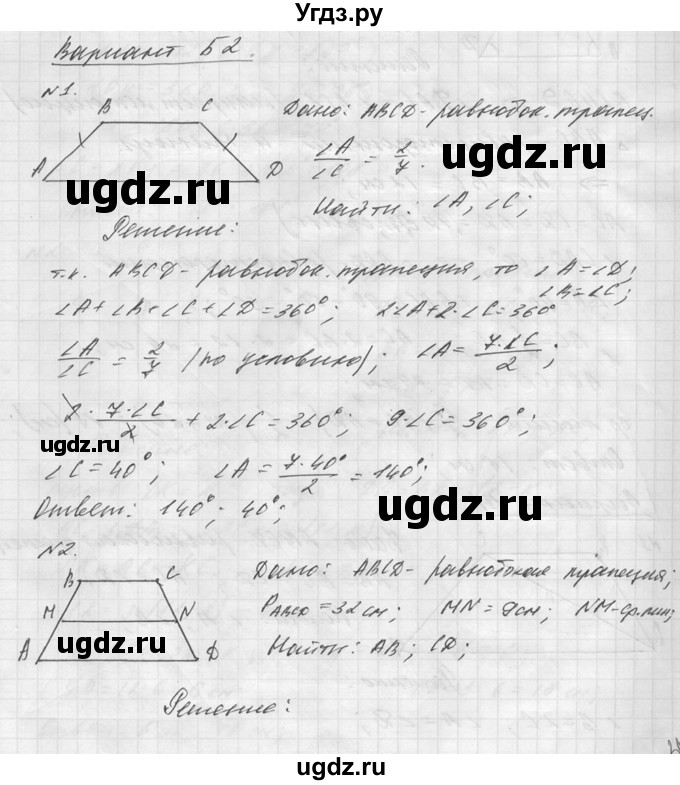 Угдз.ру
Вариант Б2.
№1.
B C
A D
Дано: ABCD - равнобок. трапец.
∠A/∠C = 2/7.
Найти: ∠A, ∠C;
ugdz.ru
ugdz.ru
Решение:
т.к. ABCD - равнобок. трапеция, то ∠A = ∠D;
∠B = ∠C;
∠A + ∠B + ∠C + ∠D = 360°; 2∠A + 2·∠C = 360°
∠A/∠C = 2/7 (по условию); ∠A = 7·∠C/2;
2 · 7·∠C/2 + 2·∠C = 360°; 9·∠C = 360°;
ugdz.ru
∠C = 40°; ∠A = 7·40°/2 = 140°;
Ответ: 140°; 40°;
ugdz.ru
№2.
B C
M N
A D
ugdz.ru
Дано: ABCD - равнобокая трапеция;
P ABCD = 32 см; MN = 9 см; NM - ср. лин;
Найти: AB; CD;
Решение:
ugdz.ru
ugdz.ru